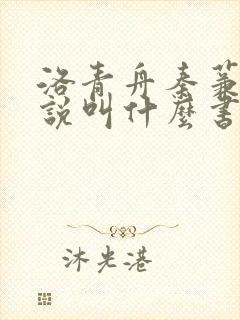 洛青舟秦蒹
說叫什麼書
沐光港